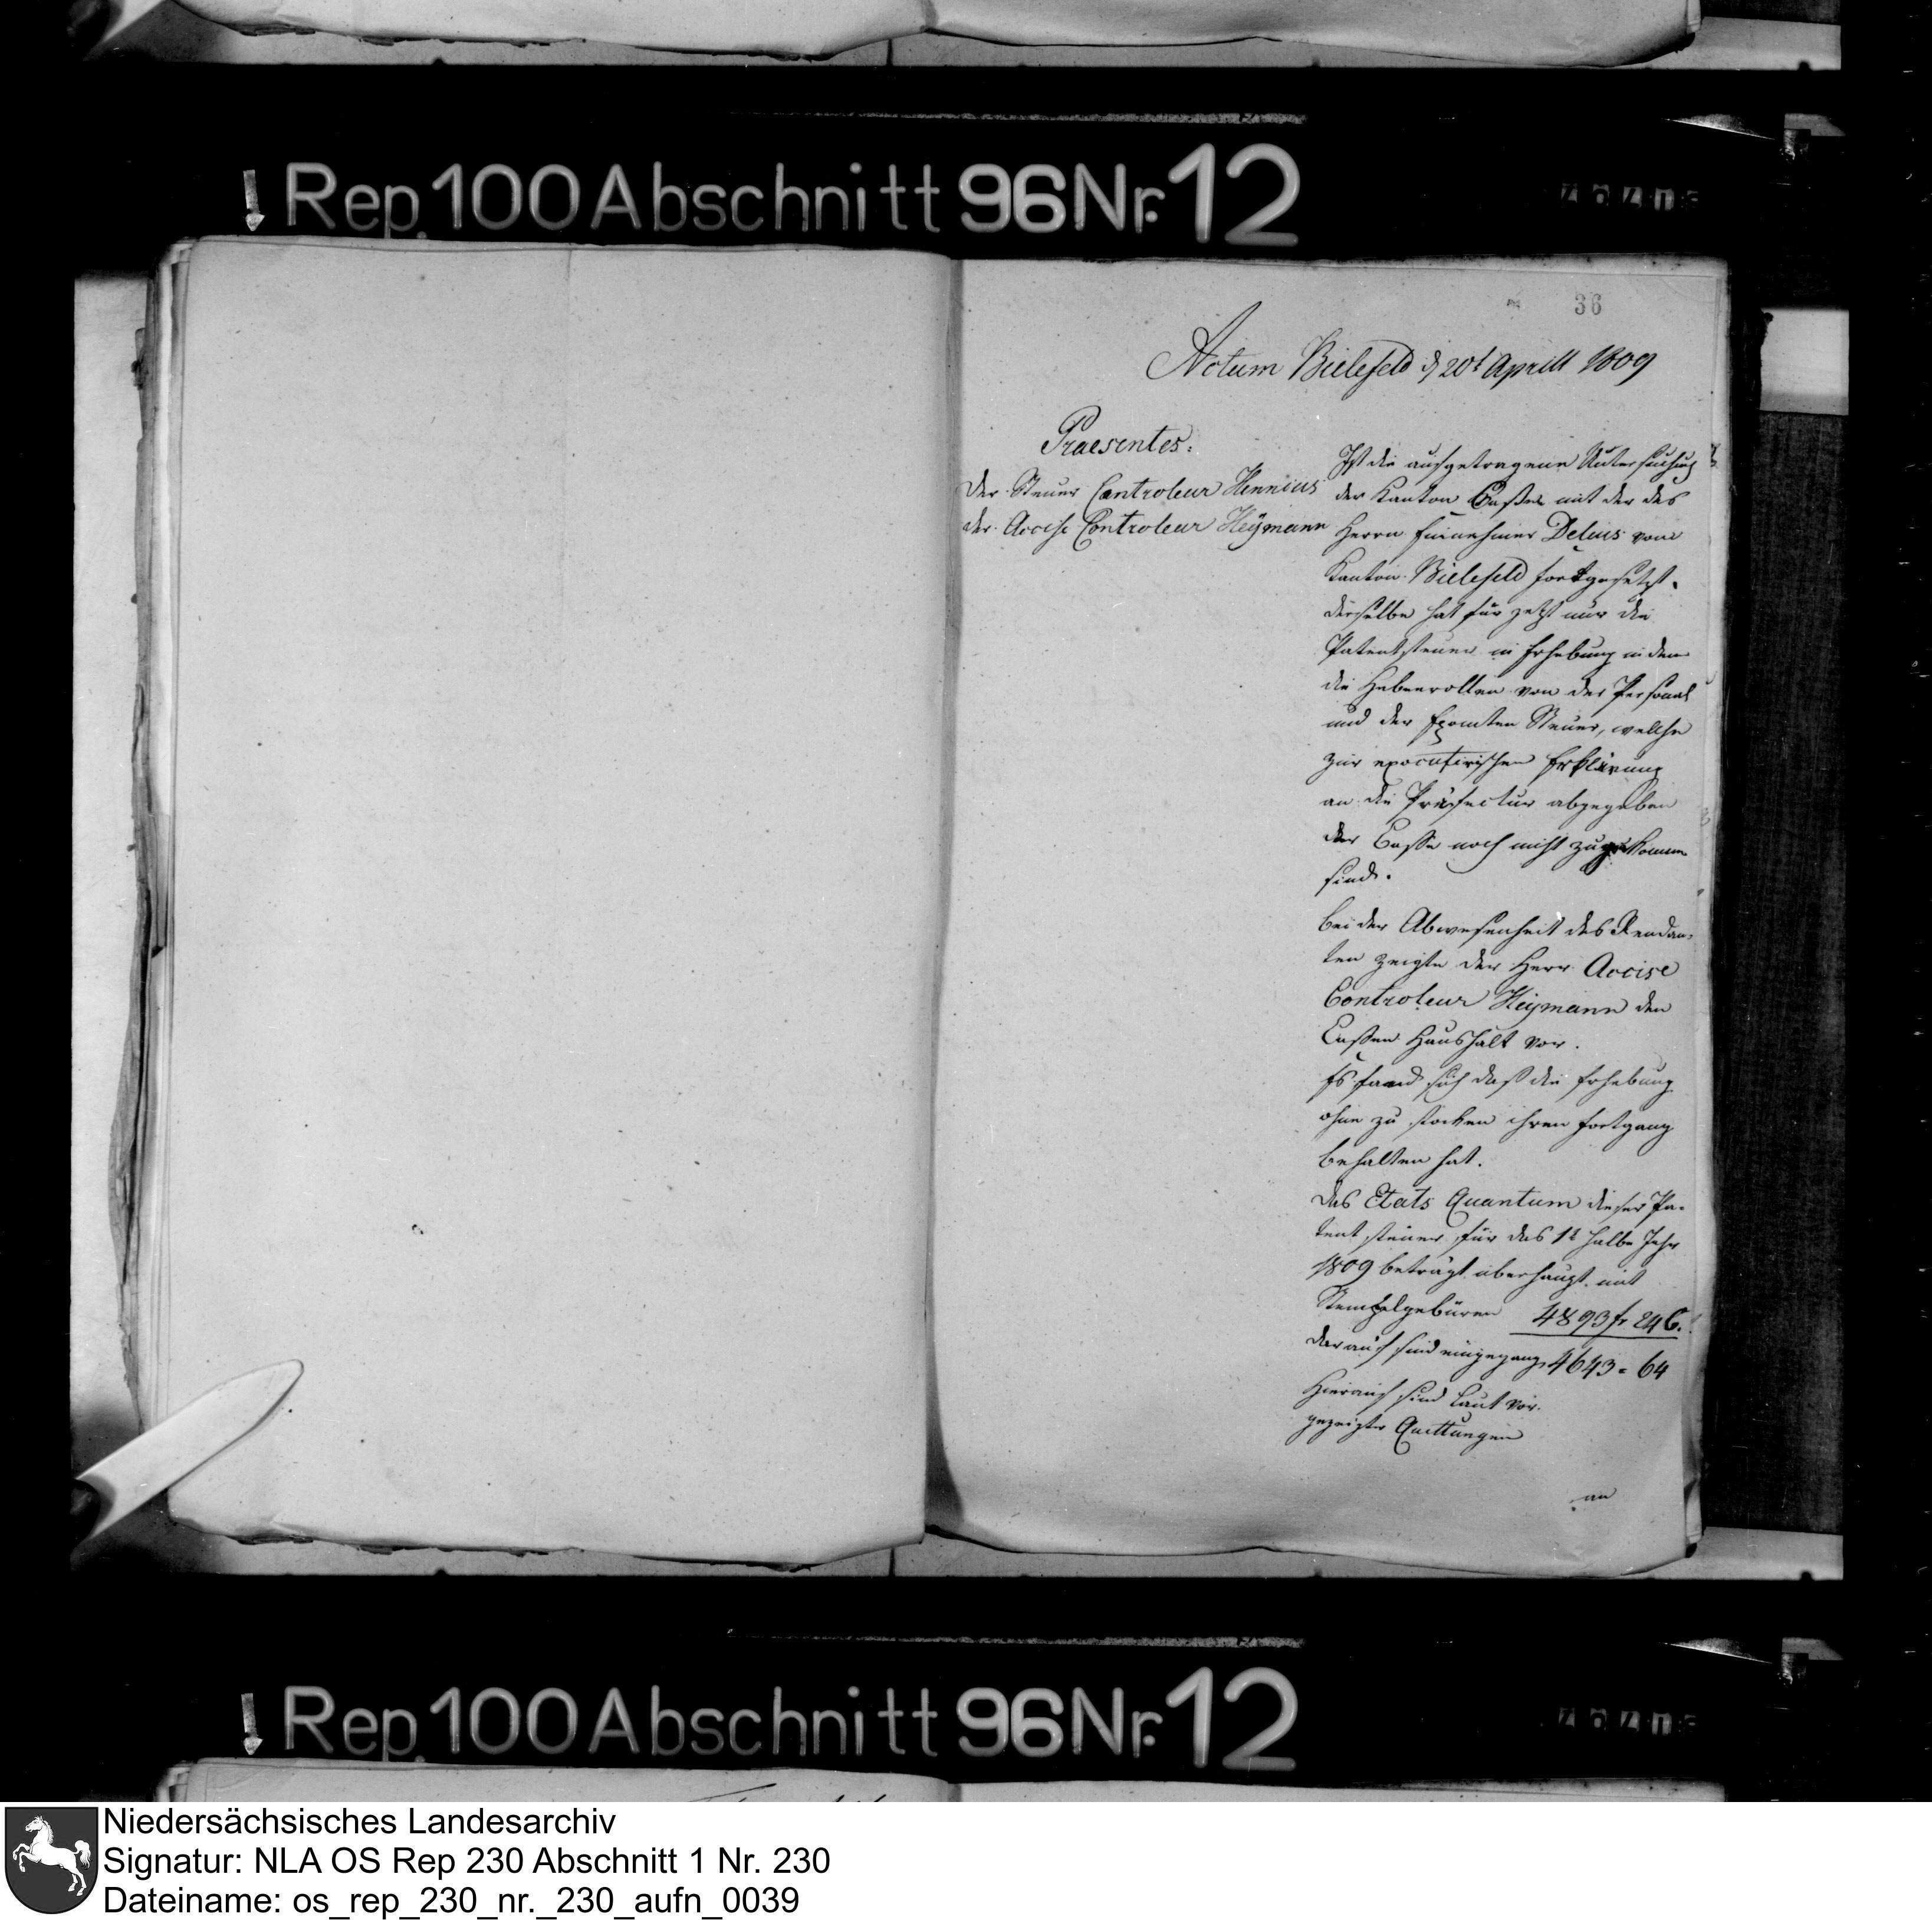 Rep. 100 Abschnitt 96 Nr. 12
36
Actum Bielefeld d 20t Aprill 1809
Praesentes:
Der Steuer Controleur Hennius
der Accise Controleur Heÿmann
Ist die aufgetragene Untersuchung
der Kanton Cassen mit der des
Herrn Einnehmer Delius vom
Kanton Bielefeld fortgesetzt.
derselbe hat für jetzt nur die
Patentsteuer in Erhebung indem
die Heberollen von der Personal
und der Exemten Steuer, welche
zur executorischen Erklärung
an die Präfectur abgegeben
der Casse noch nicht zugekommen
sind.
Bei der Abwesenheit des Rendan-
ten zeigte der Herr Accise
Controleur Heÿmann den
Cassen Haushalt vor.
Es fand sich daß die Erhebung
ohne zu stocken ihren Fortgang
behalten hat.
Das Etats Quantum dieser Pa-
tent steuer für das 1t halbe Jahr
1809 beträgt überhaupt mit
Stempelgebüren 4893 fr 24 C.
darauf sind eingegang. 4643 = 64
Hierauf sind laut vor-
gezeigter Quittungen
an
Rep. 100 Abschnitt 96 Nr. 12
Niedersächsisches Landesarchiv
Signatur: NLA OS Rep 230 Abschnitt 1 Nr. 230
Dateiname: os_rep_230_nr._230_aufn_0039